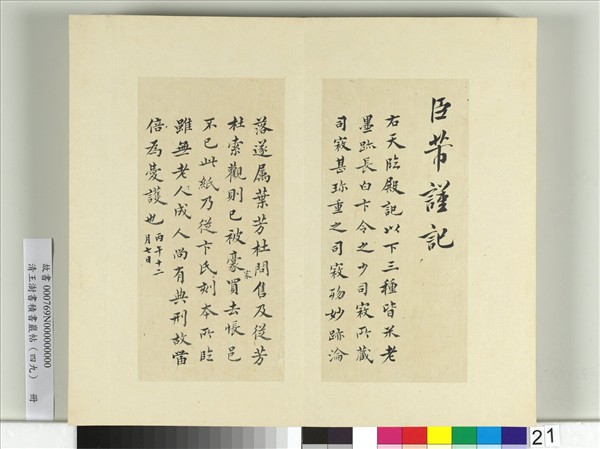 臣芾謹記
右天臨殿記以下三種皆米老
墨跡長白卞令之少司寇所藏
司寇甚珍重之司寇歿妙跡淪
落遂属葉芳杜問售及従芳
杜索觀則已被豪家買去悵邑
不已此紙乃従卞氏刻本所臨
雖無老人成人尚有典刑故當
倍為愛護也 丙午十二
月七日
故書000769N000000000
清王澍書積書巖帖（四九） 冊
21